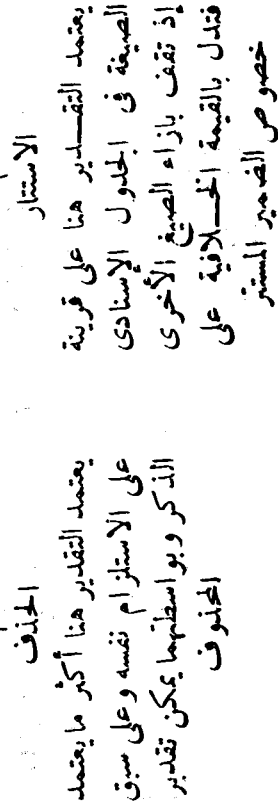 الاستتار
يعتمد التقدير هنا على قرينة
الصيغة فى الجدول الإسنادى
إذ تقف بإزاء الصيغ الأخرى
فتدل بالقيمة الخلافية على
خصوص الضمير المستتر
الحذف
يعتمد التقدير هنا أكثر ما يعتمد
على الاستلزام نفسه وعلى سبق
الذكر وبواسطتهما يمكن تقدير
المحذوف